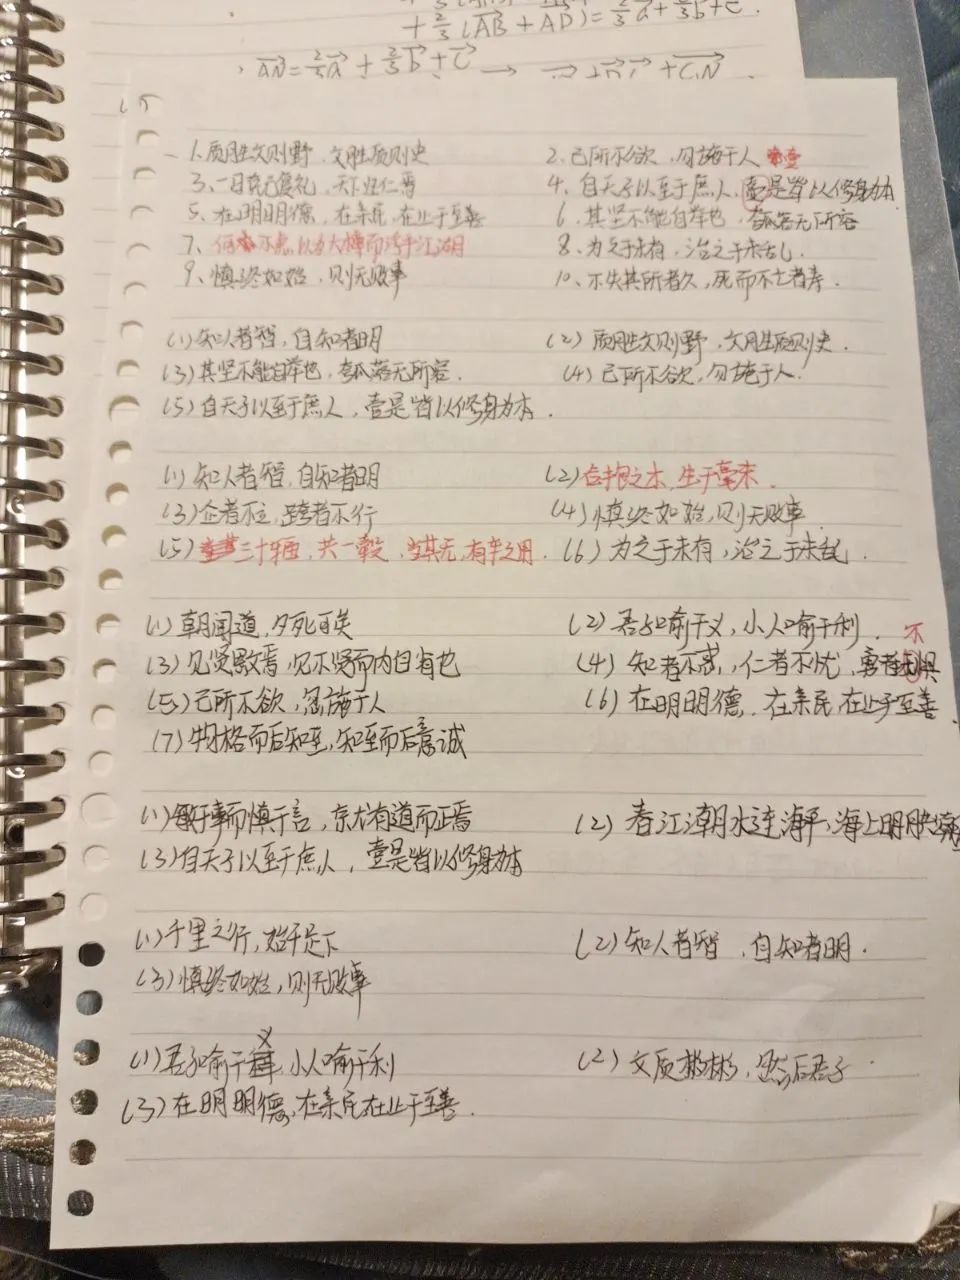 + 2/3 (AB + AD) = 2/3 a + 2/3 b + c.
AN = 2/3 a + 2/3 b + c
1.质胜文则野、文胜质则史 2.己所不欲,勿施于人 壹
3、一日克己复礼,天下归仁焉 4、自天子以至于庶人,壹是皆以修身为本
5、在明明德,在亲民,在止于至善 6、其坚不能自举也,瓠落无所容
7、何不虑以为大樽而浮乎江湖 8、为之于未有,治之于未乱.
9、慎终如始,则无败事 10、不失其所者久,死而不亡者寿.
(1)知人者智,自知者明 (2)质胜文则野,文胜质则史.
(3)其坚不能自举也,瓠落无所容. (4)己所不欲,勿施于人.
(5)自天子以至于庶人,壹是皆以修身为本.
(1)知人者智,自知者明 (2)合抱之木,生于毫末.
(3)企者不立,跨者不行 (4)慎终如始,则无败事.
(5)三十辐,共一毂,当其无,有车之用. (6)为之于未有,治之于未乱.
(1)朝闻道,夕死可矣 (2)君子喻于义,小人喻于利.
(3)见贤思齐焉,见不贤而内自省也 (4)知者不惑,仁者不忧,勇者不惧
(5)己所不欲,勿施于人 (6)在明明德.在亲民,在止于至善.
(7)物格而后知至,知至而后意诚
(1)敏于事而慎于言,就有道而正焉 (2)春江潮水连海平,海上明月共潮
(3)自天子以至于庶人,壹是皆以修身为本
(1)千里之行,始于足下 (2)知人者智,自知者明.
(3)慎终如始,则无败事
(1)君子喻于义,小人喻于利 (2)文质彬彬,然后君子.
(3)在明明德,在亲民,在止于至善.